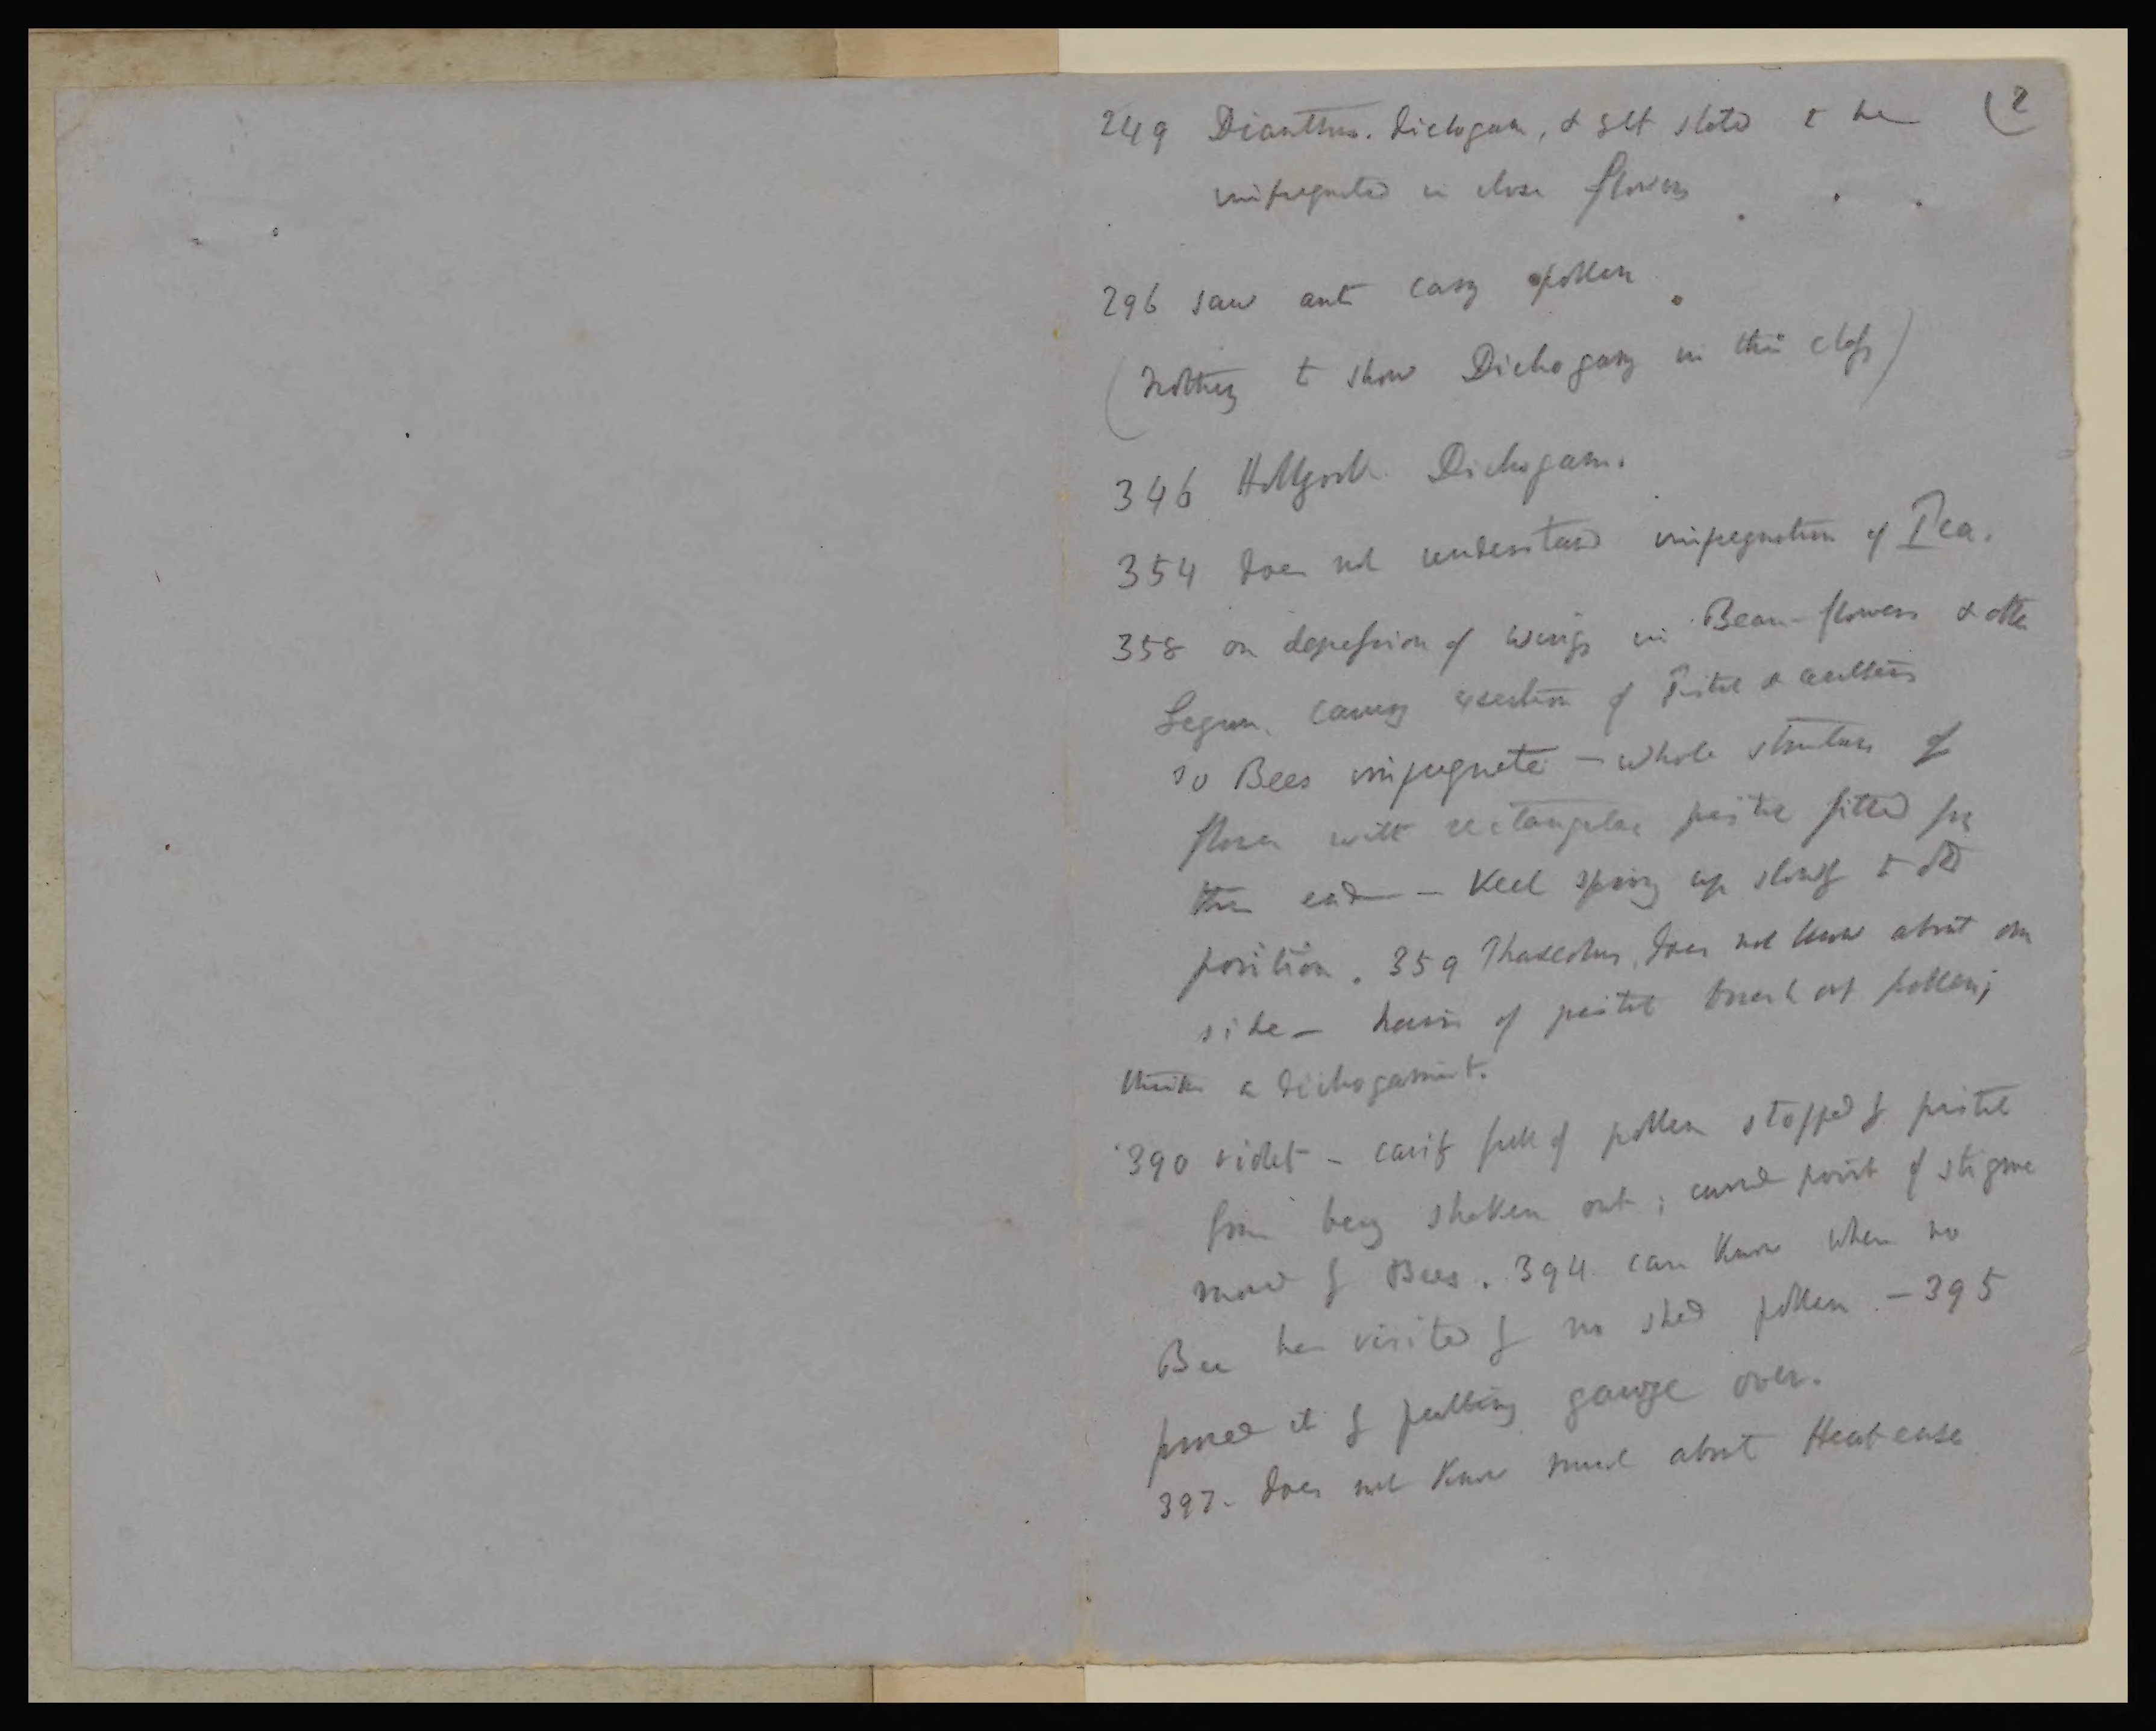 (2
249 Dianthus. dichogam, & yet stated to be
impregnated in close flowers
296 saw ant carry pollen
(Nothing to show Dichogamy in this class)
346 Hollyock Dichogam.
354 does not understand impregnation of Pea.
358 on depression of wings in Bean-flowers & other
Legum. causing exsertion of Pistil & anthers
so Bees impregnate — whole structure of
flower with rectangular pistil fitted for
this end — Keel spring up slowly to old
position. 359 Phaseolus, does not know about one
side — hairs of pistil brush out pollen;
thinks a dichogamist.
390 violet — cavity full of pollen stopped by pistil
from being shaken out; curved point of stigma
moved by Bees. 394 can know when no
Bee has visited by no shed pollen — 395
proved it by putting gauze over.
397 — does not know much about Heartsease